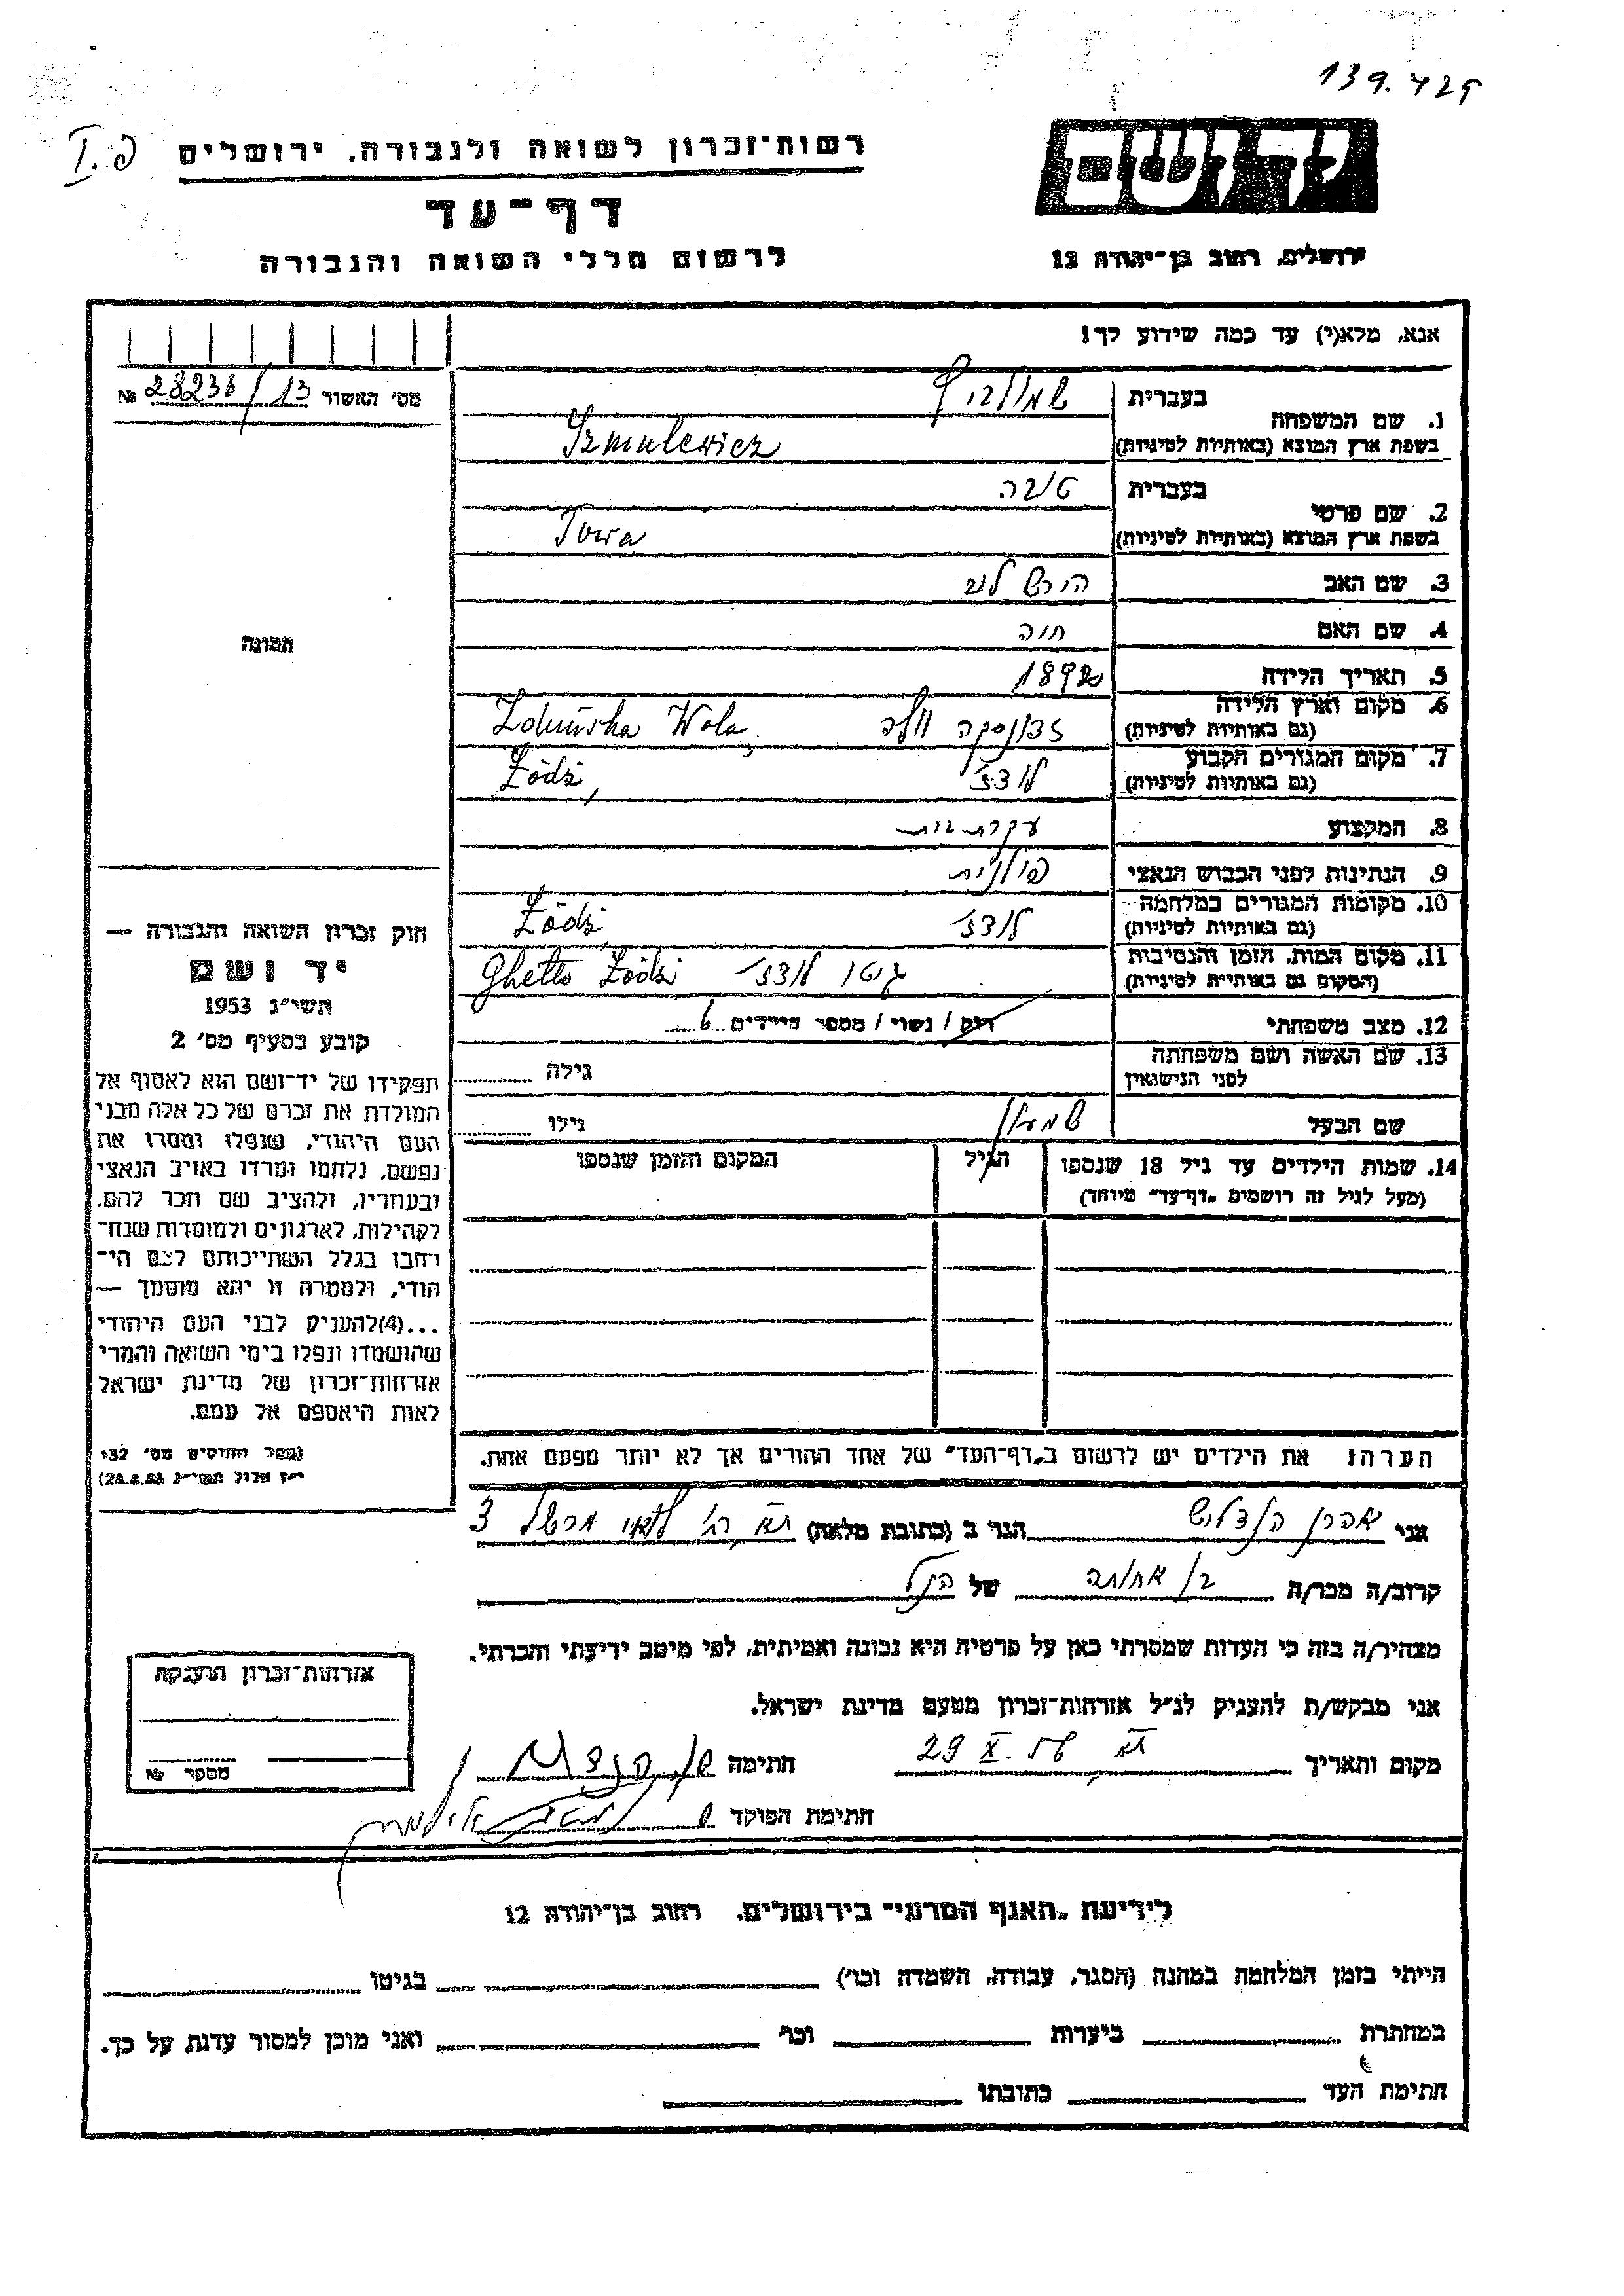 139.427
פ.I
רשות־זכרון לשואה ולגבורה, ירושלים
יד ושם
דף־עד
לרשום חללי השואה והגבורה
ירושלים, רחוב בן־יהודה 12
אנא, מלא(י) עד כמה שידוע לך!
מס׳ האשור 28236/13 №
1. שם המשפחה
בעברית
בשפת ארץ המוצא (באותיות לטיניות)
Szmulewicz
2. שם פרטי
בעברית טובה
בשפת ארץ המוצא (באותיות לטיניות)
Towa
3. שם האב הירש לוי
4. שם האם חוה
5. תאריך הלידה 1892
6. מקום וארץ הלידה
(גם באותיות לטיניות)
זדונסקה וולה Zduńska Wola,
7. מקום המגורים הקבוע
(גם באותיות לטיניות)
לודז׳ Łódź,
8. המקצוע עקרת בית
9. הנתינות לפני הכבוש הנאצי פולנית
10. מקומות המגורים במלחמה
(גם באותיות לטיניות)
לודז׳ Łódź,
11. מקום המות, הזמן והנסיבות
(המקום גם באותיות לטיניות)
גיטו לודז׳ Ghetto Łódź
12. מצב משפחתי רוק/נשוי/מספר הילדים 6
13. שם האשה ושם משפחתה
לפני הנישואין
גילה
שם הבעל שמעון גילו
14. שמות הילדים עד גיל 18 שנספו
(מעל לגיל זה רושמים „דף־עד״ מיוחד)
הגיל
המקום והזמן שנספו
תמונה
חוק זכרון השואה והגבורה —
יד ושם
תשי״ג 1953
קובע בסעיף מס׳ 2
תפקידו של יד־ושם הוא לאסוף אל
המולדת את זכרם של כל אלה מבני
העם היהודי, שנפלו ומסרו את
נפשם, נלחמו ומרדו באויב הנאצי
ובעוזריו, ולהציב שם וזכר להם,
לקהילות, לארגונים ולמוסדות שנח־
רחבו בגלל השתייכותם לעם הי־
הודי, ולמטרה זו יהא מוסמך —
...(4)להעניק לבני העם היהודי
שהושמדו ונפלו בימי השואה והמרי
אזרחות־זכרון של מדינת ישראל
לאות היאספם אל עמם.
(ספר החוקים מס׳ 132
י״ז אלול תשי״ג 28.8.53)
הערה: את הילדים יש לרשום ב„דף־העד״ של אחד ההורים אך לא יותר מפעם אחת.
אני אהרן הנדלוש הגר ב (כתובת מלאה) תא רח׳
קרוב/ה מכר/ה בן אחותה של הנ״ל
מצהיר/ה בזה כי העדות שמסרתי כאן על פרטיה היא נכונה ואמיתית, לפי מיטב ידיעתי והכרתי.
אני מבקש/ת להעניק לנ״ל אזרחות־זכרון מטעם מדינת ישראל.
מקום ותאריך תא 29 X. 56 חתימה
חתימת הפוקד
אזרחות־זכרון הוענקה
מספר №
לידיעת „האגף המדעי״ בירושלים, רחוב בן־יהודה 12
הייתי בזמן המלחמה במחנה (הסגר, עבודה, השמדה וכו׳) בגיטו
במחתרת ביערות וכו׳ ואני מוכן למסור עדות על כך.
חתימת העד כתובתו